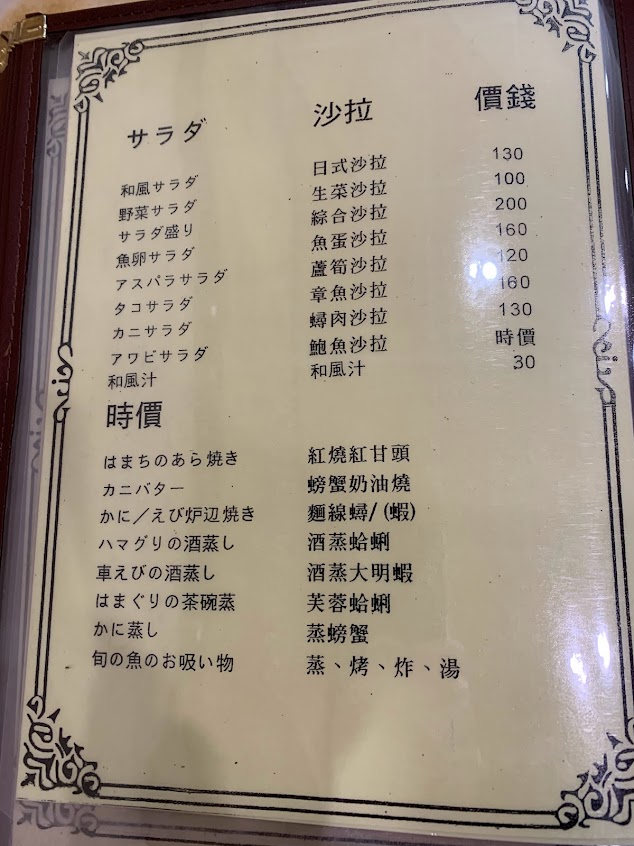 サラダ 沙拉 價錢
和風サラダ 日式沙拉 130
野菜サラダ 生菜沙拉 100
サラダ盛り 綜合沙拉 200
魚卵サラダ 魚蛋沙拉 160
アスパラサラダ 蘆筍沙拉 120
タコサラダ 章魚沙拉 160
カニサラダ 蟳肉沙拉 130
アワビサラダ 鮑魚沙拉 時價
和風汁 和風汁 30
時價
はまちのあら焼き 紅燒紅甘頭
カニバター 螃蟹奶油燒
かに／えび炉辺焼き 麵線蟳/(蝦)
ハマグリの酒蒸し 酒蒸蛤蜊
車えびの酒蒸し 酒蒸大明蝦
はまぐりの茶碗蒸 芙蓉蛤蜊
かに蒸し 蒸螃蟹
旬の魚のお吸い物 蒸、烤、炸、湯